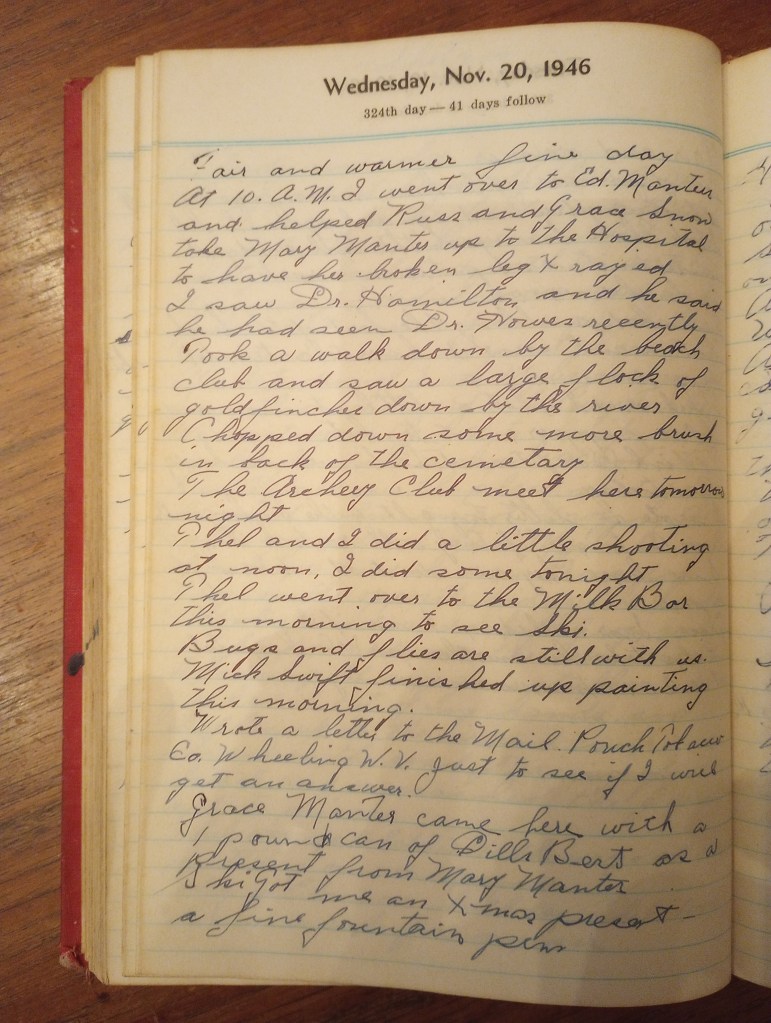 Wednesday, Nov. 20, 1946
324th day — 41 days follow
Fair and warmer fine day
At 10. A.M. I went over to Ed. Manters
and helped Russ and Grace Snow
take Mary Manter up to the Hospital
to have her broken leg X rayed
I saw Dr. Hamilton and he said
he had seen Dr. Howes recently
Took a walk down by the beach
club and saw a large flock of
goldfinches down by the river
Chopped down some more brush
in back of the cemetary
The Archery Club meet here tomorrow
night
Phel and I did a little shooting
at noon, I did some tonight
Phel went over to the Milk Bar
this morning to see Ski.
Bugs and flies are still with us.
Mick Swift finished up painting
this morning.
Wrote a letter to the Mail Pouch Tobacco
Co. Wheeling W.V. just to see if I will
get an answer.
Grace Manter came here with a
1 pound can of Dills Best as a
present from Mary Manter
Ski Got me an Xmas present -
a fine fountain pen